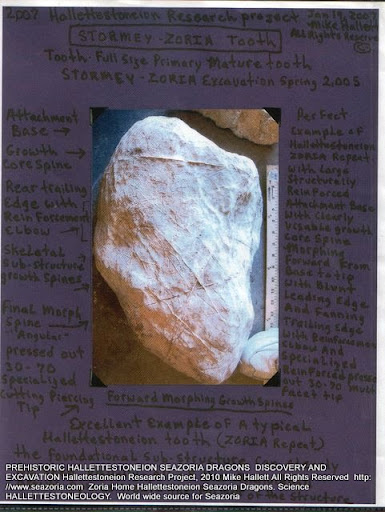 2007 Hallettestoneion Research project Jan 19, 2007
Mike Hallett
All Rights Reserve
©
STORMEY-ZORIA Tooth
Tooth-Full Size Primary Mature tooth
STORMEY-ZORIA Excavation Spring 2005
Attachment
Base →
Growth →
Core Spine
Rear trailing
Edge with
Reinforcement
Elbow →
Skeletal
Sub-structure
growth Spines
Final Morph
Spine →
"Angular"
pressed out
30-70
specialized
Cutting Piercing
Tip
Perfect
Example of
Hallettestoneion
ZORIA Repeat
with Large
Structurely
Reinforced
Attachment Base
With Clearly
Visable growth
Core Spine
Morphing
Forward From
Base to tip
with Blunt
Leading Edge
And Fanning
Trailing Edge
with Reinforcement
elbow And
Specialized
Reinforced pressed
out 30-70 multi
Facet tip
Forward Morphing Growth Spines
Excellent Example of A typical
Hallettestoneion tooth (ZORIA Repeat)
the foundational Sub-structure
PREHISTORIC HALLETTESTONEION SEAZORIA DRAGONS DISCOVERY AND
EXCAVATION Hallettestoneion Research Project, 2010 Mike Hallett All Rights Reserved http:
//www.seazoria.com Zoria Home Hallettestoneion Seazoria Dragons. Science
HALLETTESTONEOLOGY. World wide source for Seazoria
of the structure